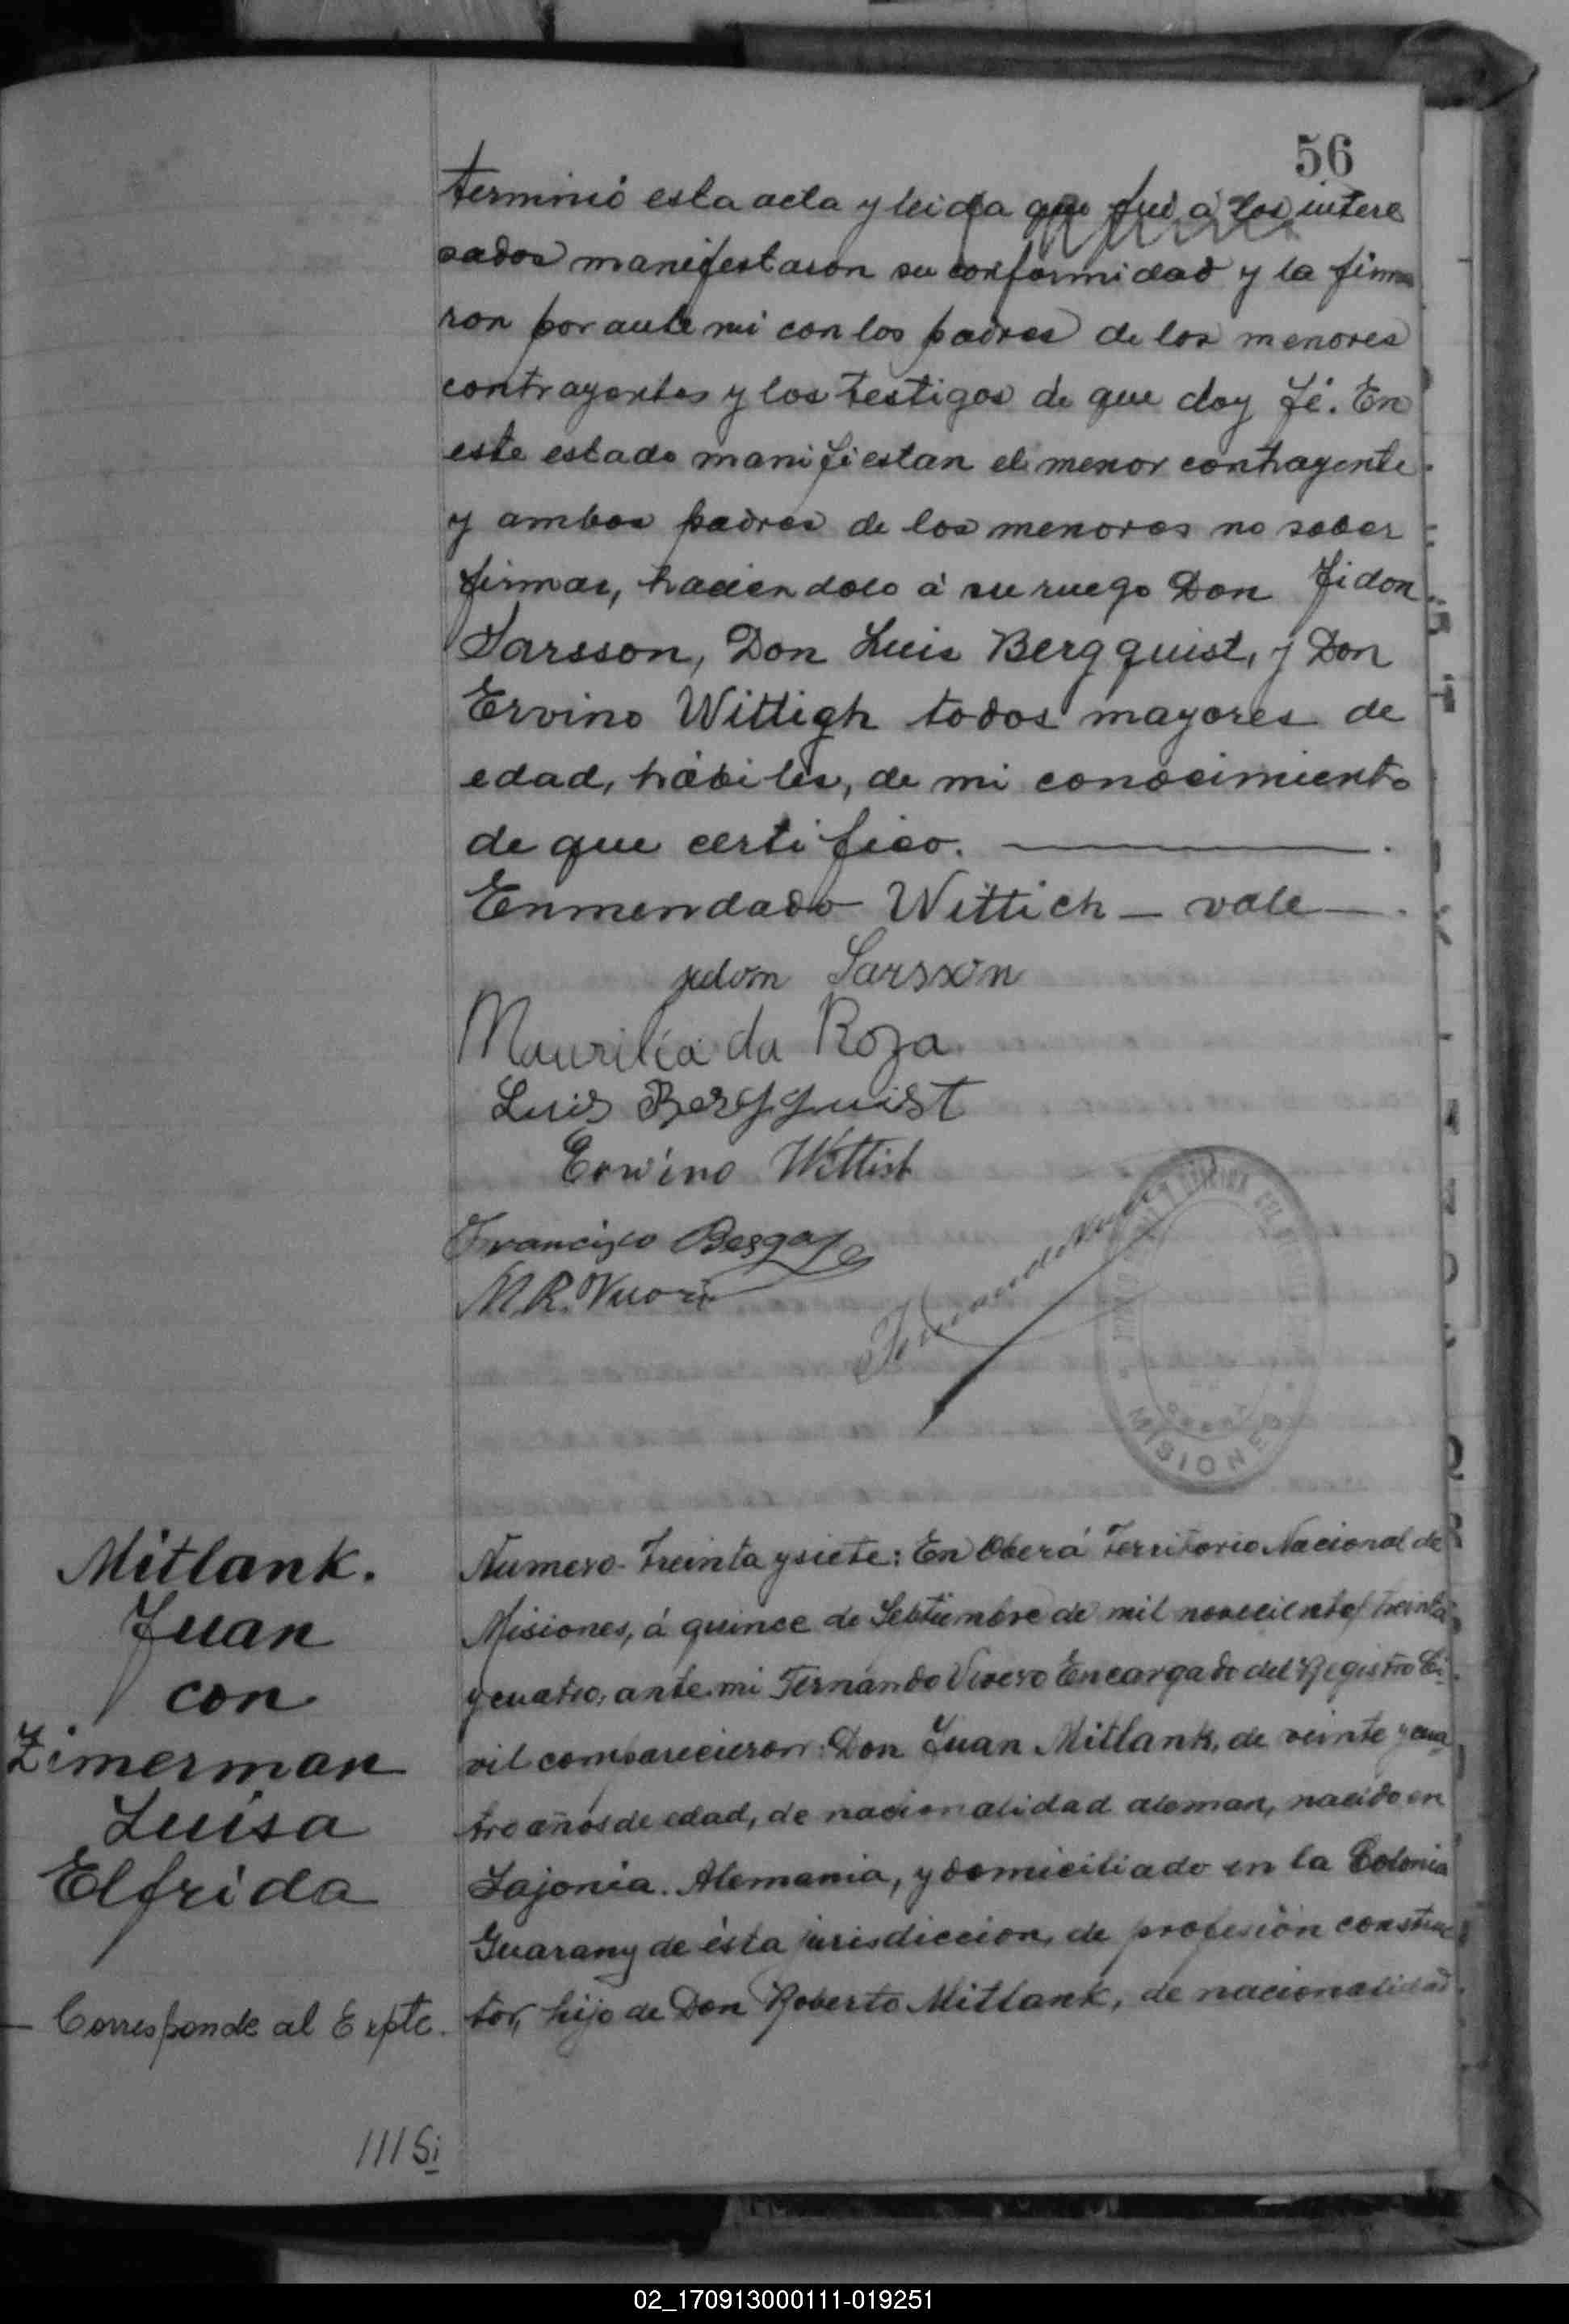 56
terminó esta acta y leida que fué á los intere
sados manifestaron su conformidad y la firma
ron por ante mi con los padres de los menores
contrayentes y los testigos de que doy fé. En
este estado manifiestan el menor contrayente
y ambos padres de los menores no saber
firmar, haciendolo á su ruego Don Fidon
Sarsson, Don Luis Bergquist, y Don
Ervino Wittigh todos mayores de
edad, hábiles, de mi conocimiento
de que certifico.
Enmendado Wittich — vale —.
Sarsson
Maurilia da Roza
Luis Bergquist
Erwino Wittich
Francisco
M.R. Vuori
MISIONES
Mitlank.
Juan
con
Zimerman
Luisa
Elfrida
— Corresponde al Expte.
1115
Numero Treinta y siete: En Oberá Territorio Nacional de
Misiones, á quince de Septiembre de mil novecientos treinta
y cuatro, ante mi Fernando Vivero Encargado del Registro Ci
vil comparecieron: Don Juan Mitlank, de veinte y cua
tro años de edad, de nacionalidad aleman, nacido en
Sajonia. Alemania, y domiciliado en la Colonia
Guarany de ésta jurisdiccion, de profesión construc
tor, hijo de Don Roberto Mitlank, de nacionalidad
02_170913000111-019251